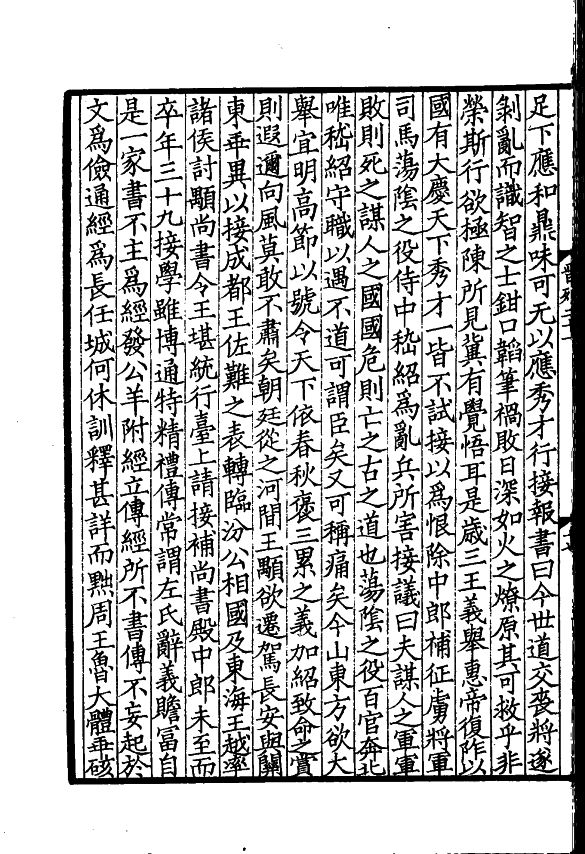 足下應和鼎味可无以應秀才行接報書曰今世道交喪將遂
剝亂而識智之士鉗口韜筆禍敗日深如火之燎原其可救乎非
榮斯行欲極陳所見冀有覺悟耳是歲三王義舉惠帝復阼以
國有大慶天下秀才一皆不試接以爲恨除中郎補征虜將軍
司馬蕩陰之役侍中嵇紹爲亂兵所害接議曰夫謀人之軍軍
敗則死之謀人之國國危則亡之古之道也蕩陰之役百官奔北
唯嵇紹守職以遇不道可謂臣矣又可稱痛矣今山東方欲大
舉宜明高節以號令天下依春秋褒三累之義加紹致命之賞
則遐邇向風莫敢不肅矣朝廷從之河間王顒欲遷駕長安與關
東乖異以接成都王佐難之表轉臨汾公相國及東海王越率
諸侯討顒尚書令王堪統行臺上請接補尚書殿中郎未至而
卒年三十九接學雖博通特精禮傳常謂左氏辭義贍富自
是一家書不主爲經發公羊附經立傳經所不書傳不妄起於
文爲儉通經爲長任城何休訓釋甚詳而黜周王魯大體乖硋